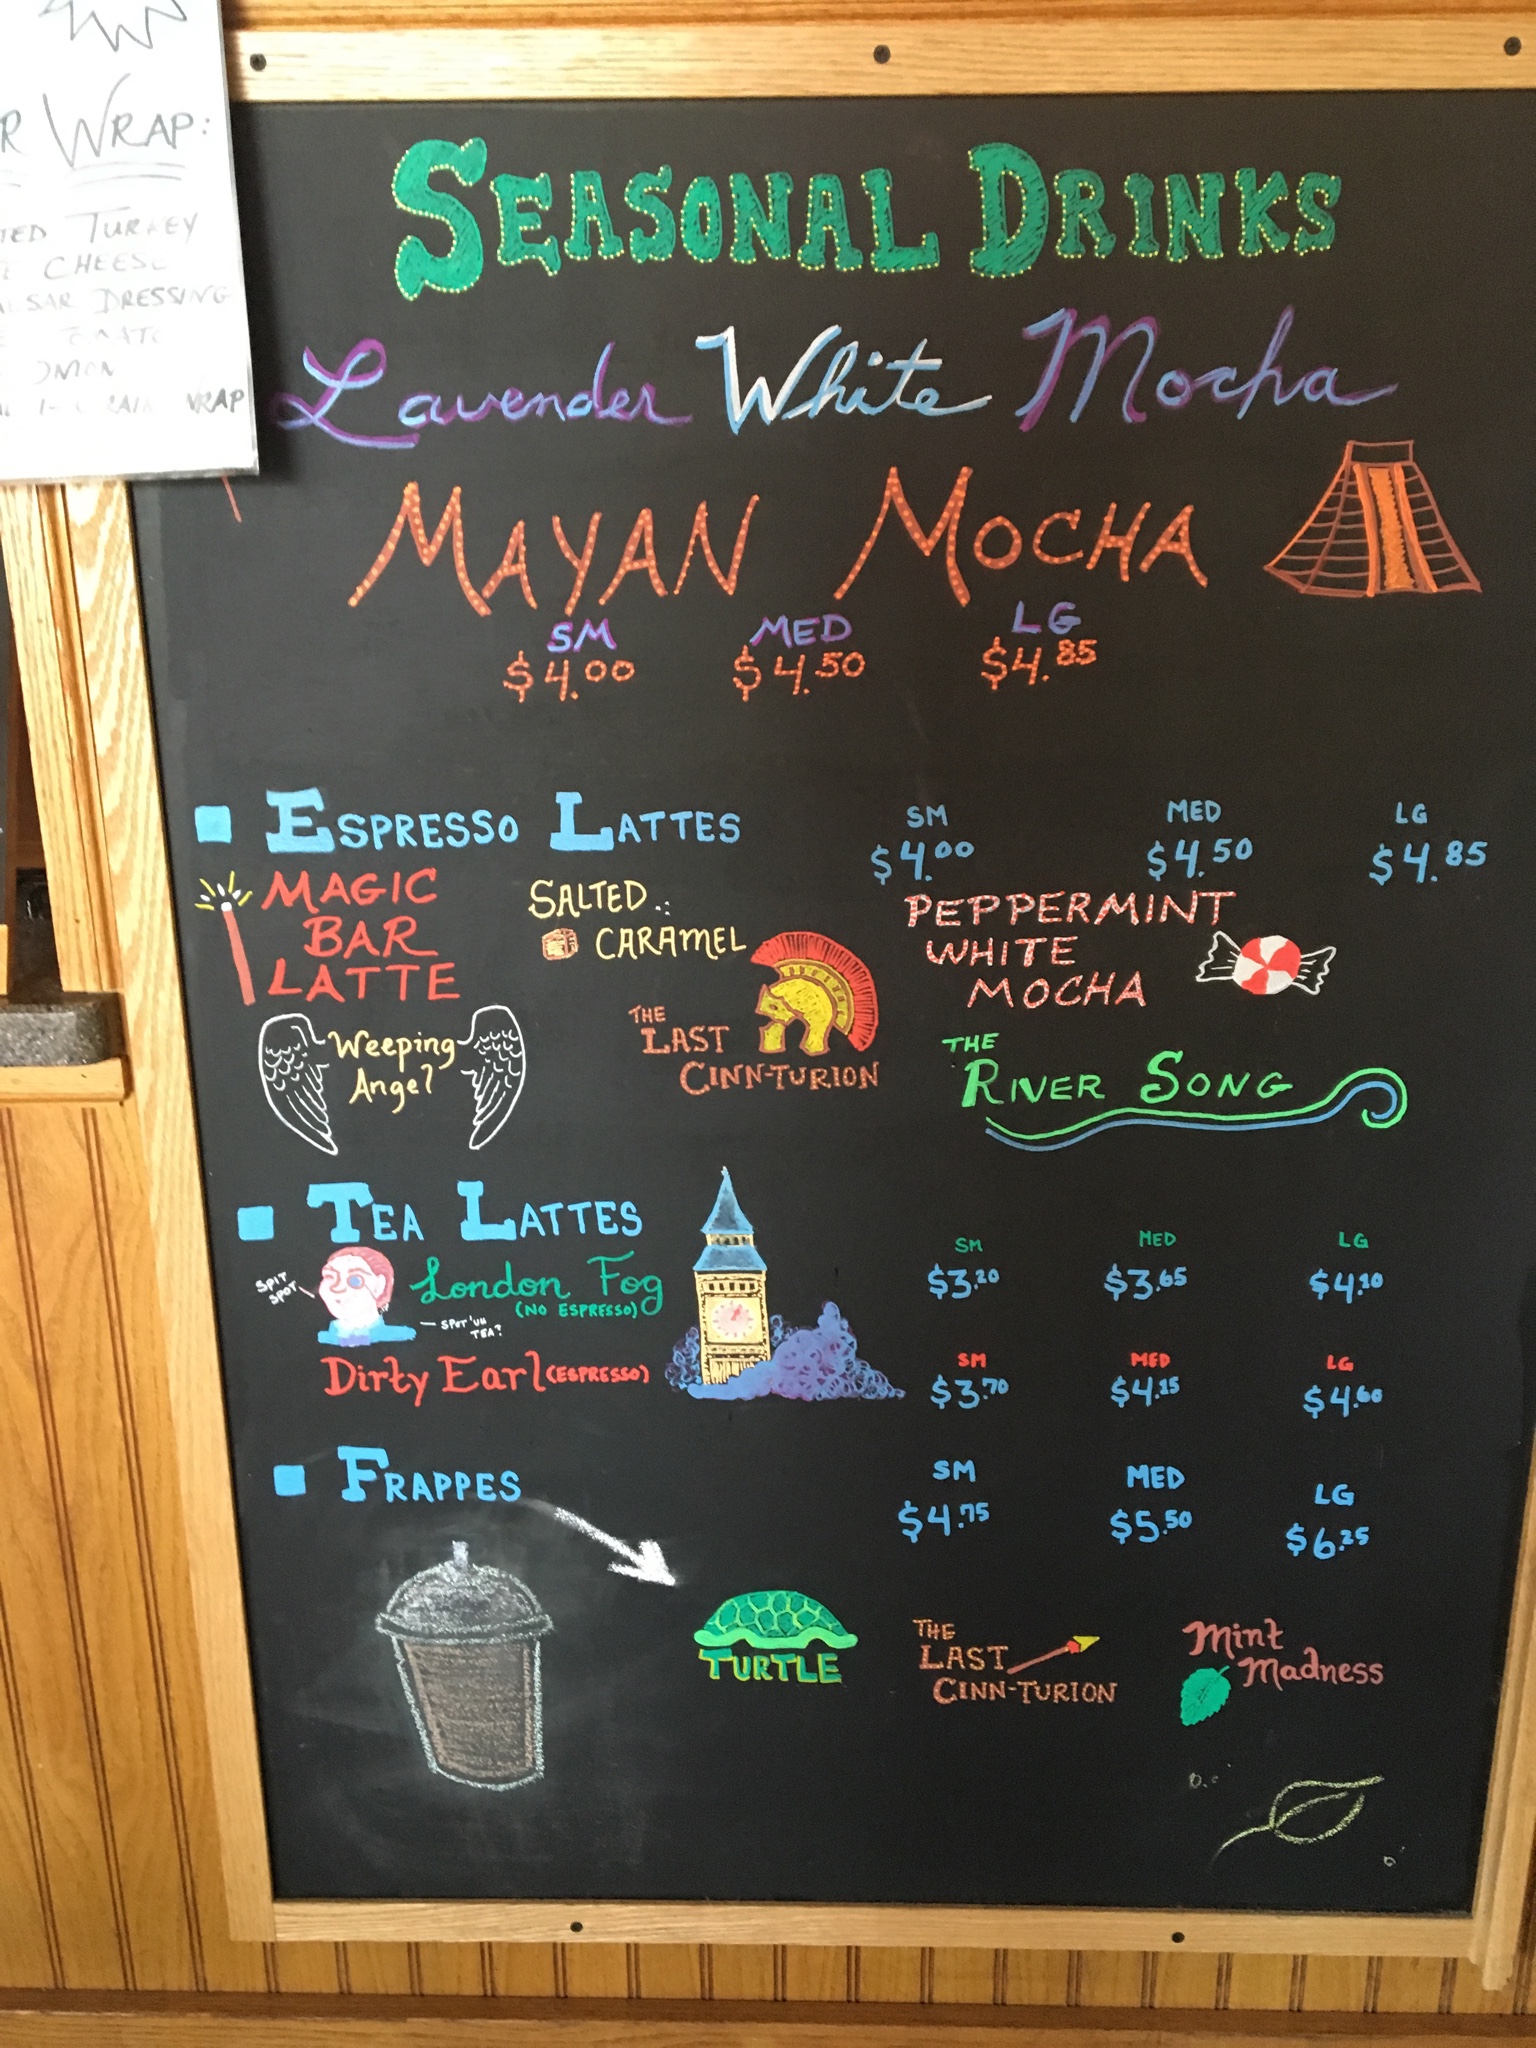 R WRAP:
TURKEY
CHEESE
DRESSING
WRAP
SEASONAL DRINKS
Lavender White Mocha
MAYAN MOCHA
SM MED LG
$4.00 $4.50 $4.85
ESPRESSO LATTES SM MED LG
$4.00 $4.50 $4.85
MAGIC
BAR
LATTE
SALTED
CARAMEL
PEPPERMINT
WHITE
MOCHA
Weeping
Angel
THE
LAST
CINN-TURION
THE
RIVER SONG
TEA LATTES
SPIT
SPOT
London Fog
(NO ESPRESSO)
SM MED LG
$3.20 $3.65 $4.10
SPOT 'UH
TEA?
Dirty Earl (ESPRESSO)
SM MED LG
$3.70 $4.15 $4.60
FRAPPES SM MED LG
$4.75 $5.50 $6.25
TURTLE
THE
LAST
CINN-TURION
Mint
Madness